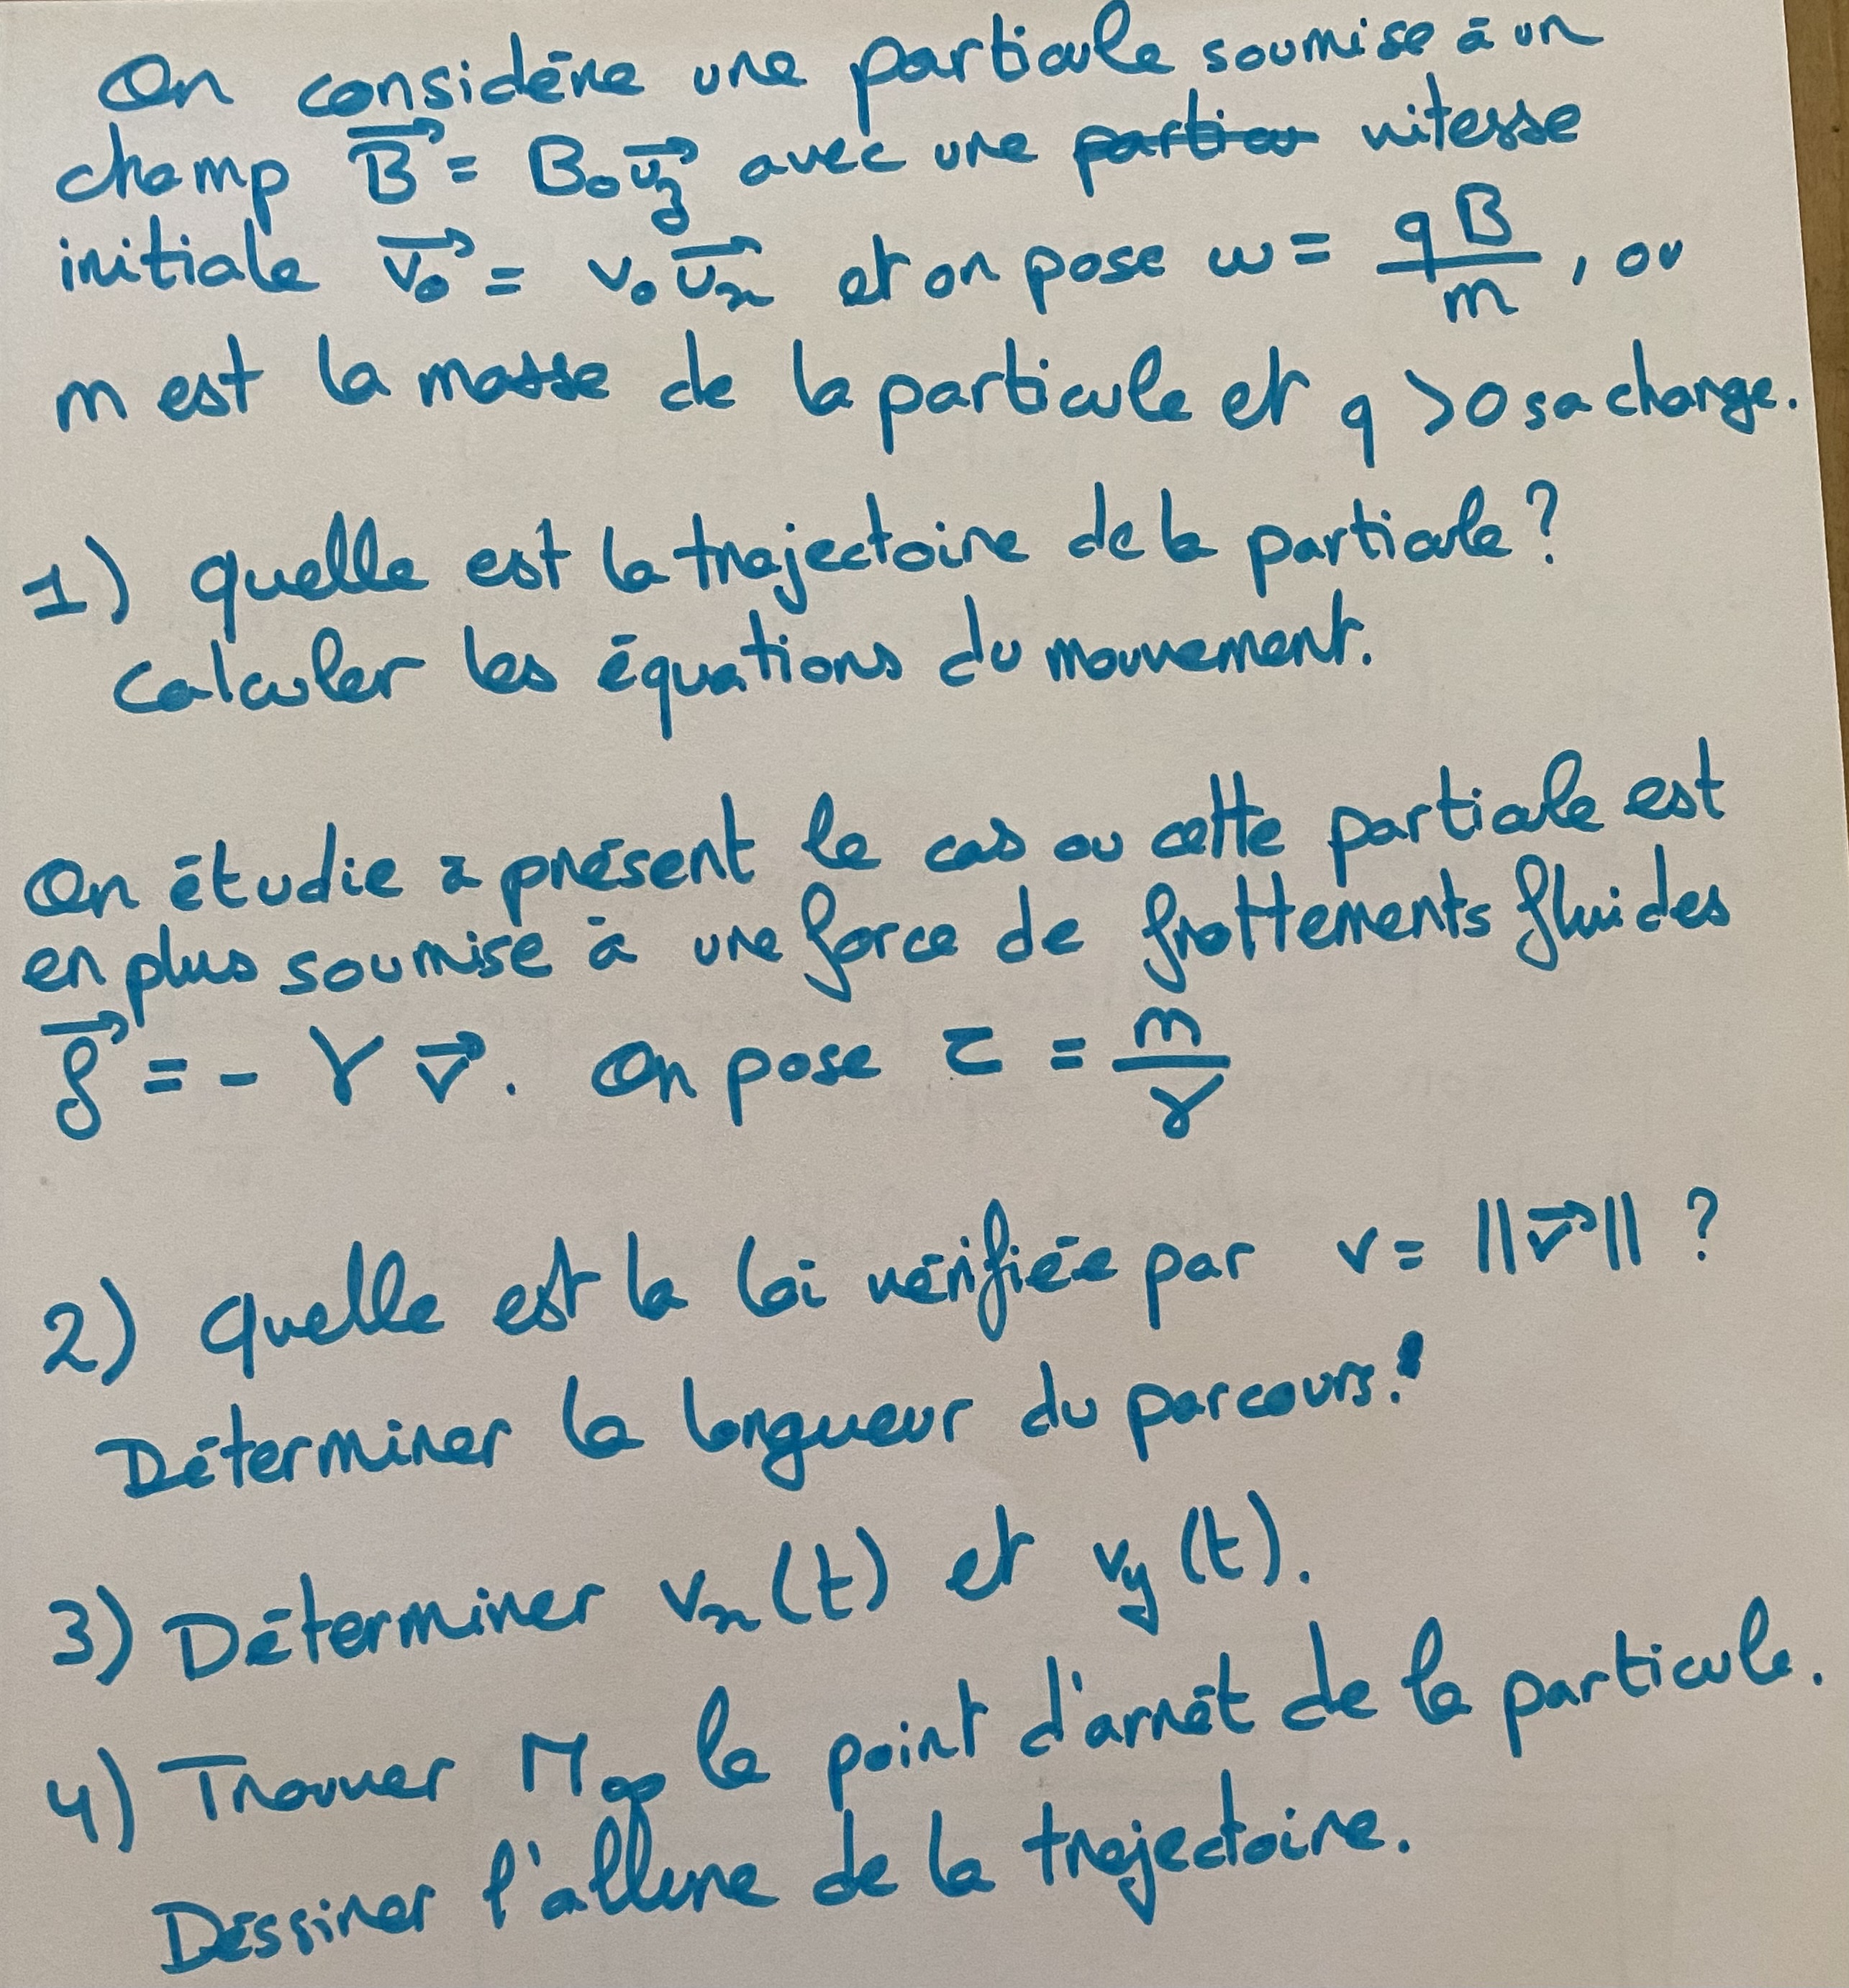 On considère une particule soumise à un
champ \vec{B} = B₀\vec{u_z} avec une ~~particu~~ vitesse
initiale \vec{v₀} = v₀\vec{u_x} et on pose ω = \frac{qB}{m}, ou
m est la masse de la particule et q > 0 sa charge.
1) Quelle est la trajectoire de la particule ?
Calculer les équations du mouvement.
On étudie à présent le cas ou cette particule est
en plus soumise à une force de frottements fluides
\vec{f} = - γ \vec{v}. On pose τ = \frac{m}{γ}
2) Quelle est la loi vérifiée par v = ||\vec{v}|| ?
Déterminer la longueur du parcours.
3) Déterminer v_x(t) et v_y(t).
4) Trouver M_∞ le point d'arrêt de la particule.
Dessiner l'allure de la trajectoire.